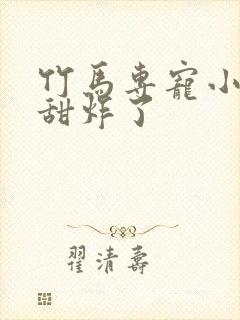 竹馬專寵小
甜炸了
翟清壽